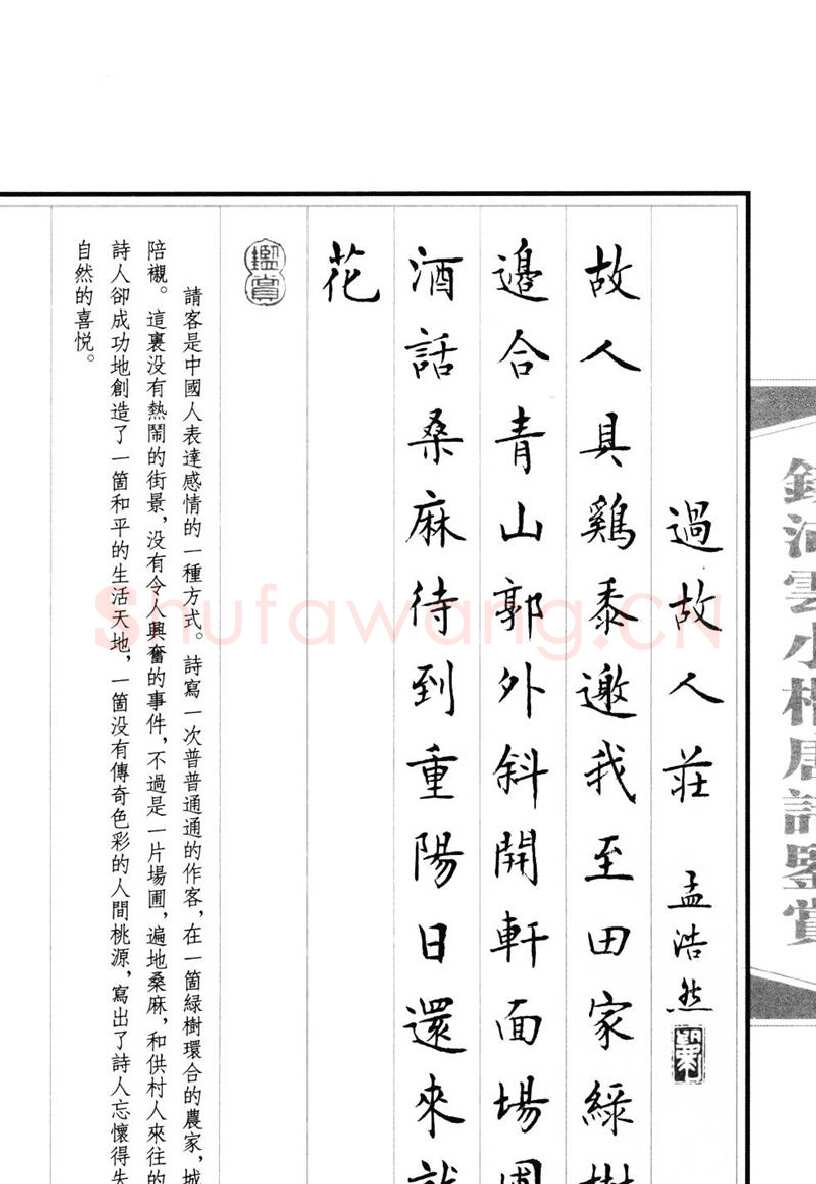 過故人莊 孟浩然
故人具鷄黍邀我至田家綠樹
邊合青山郭外斜開軒面場圃
酒話桑麻待到重陽日還來就
花
鑑賞
請客是中國人表達感情的一種方式。詩寫一次普普通通的作客，在一箇綠樹環合的農家，城
陪襯。這裏没有熱鬧的街景，没有令人興奮的事件，不過是一片場圃，遍地桑麻，和供村人來往的
詩人卻成功地創造了一箇和平的生活天地，一箇没有傳奇色彩的人間桃源，寫出了詩人忘懷得失
自然的喜悦。
雲小楷唐詩鑒賞
Shufawang.CN